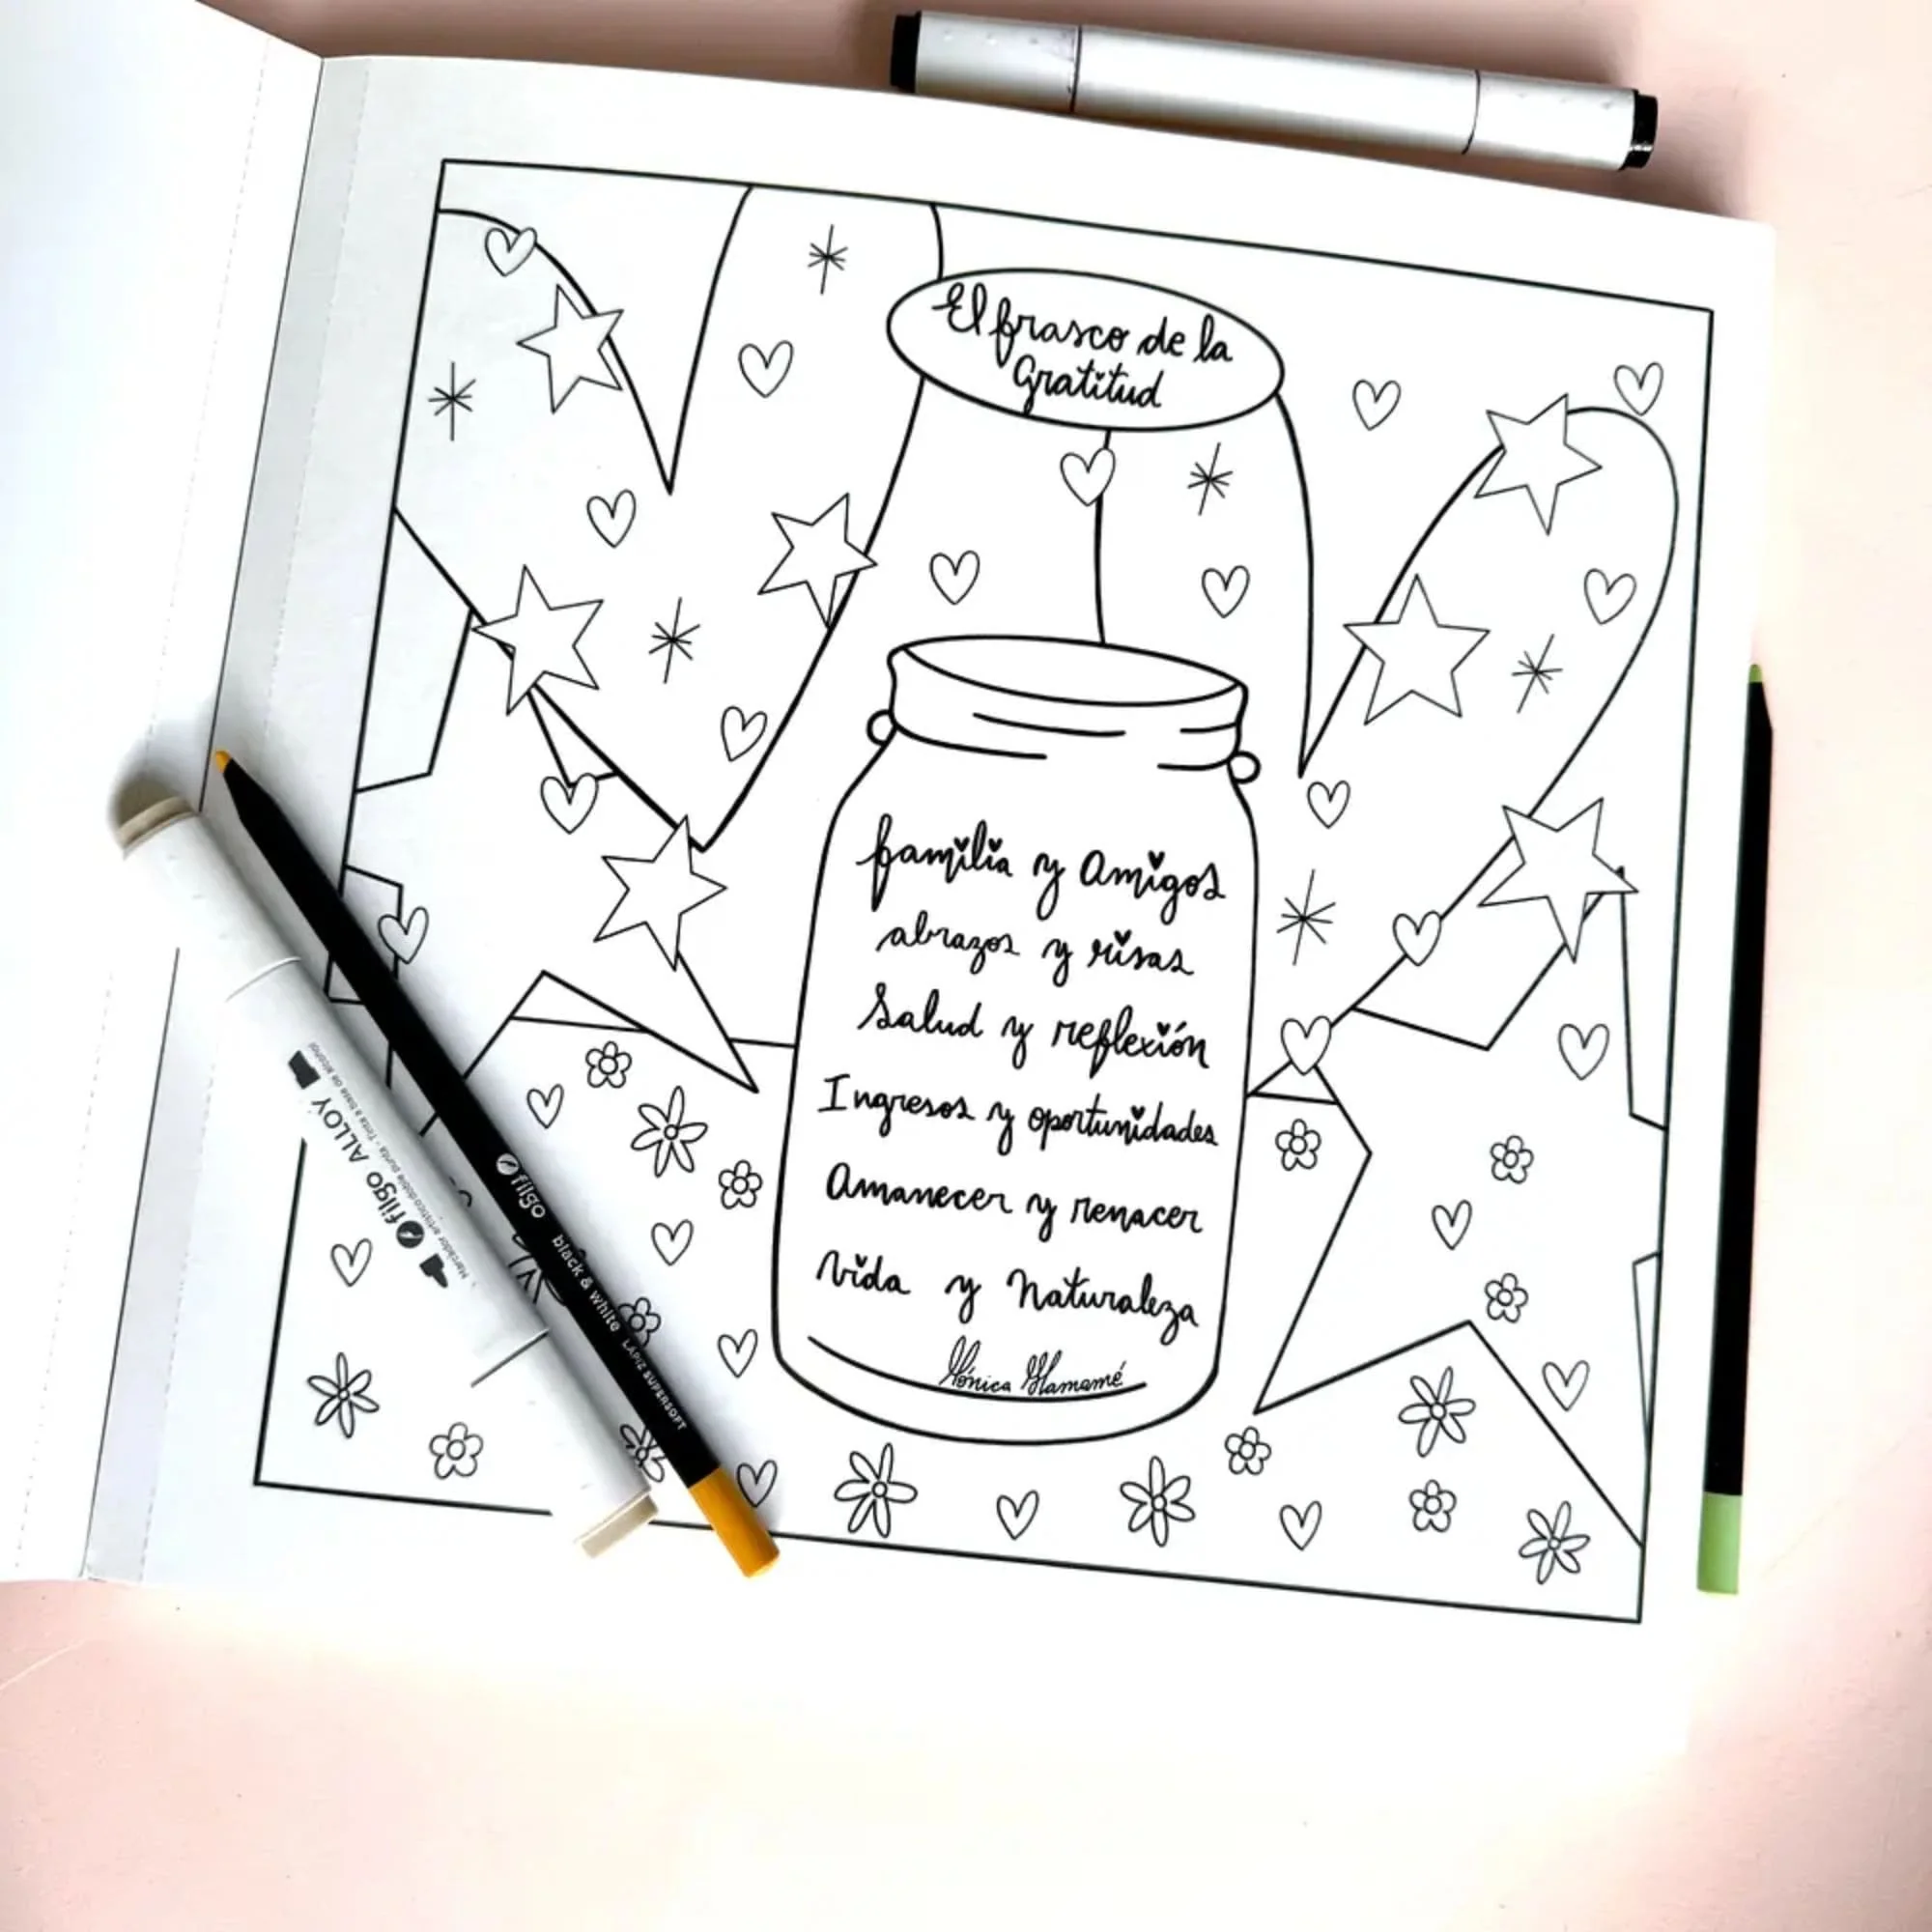 El frasco de la
Gratitud
familia y Amigos
abrazos y risas
Salud y reflexión
Ingresos y oportunidades
Amanecer y renacer
Vida y Naturaleza
Mónica Mamamé
filgo black & white LÁPIZ SUPERSOFT
filgo ALLOY
Marcador artístico doble punta - Tinta a base de Alcohol